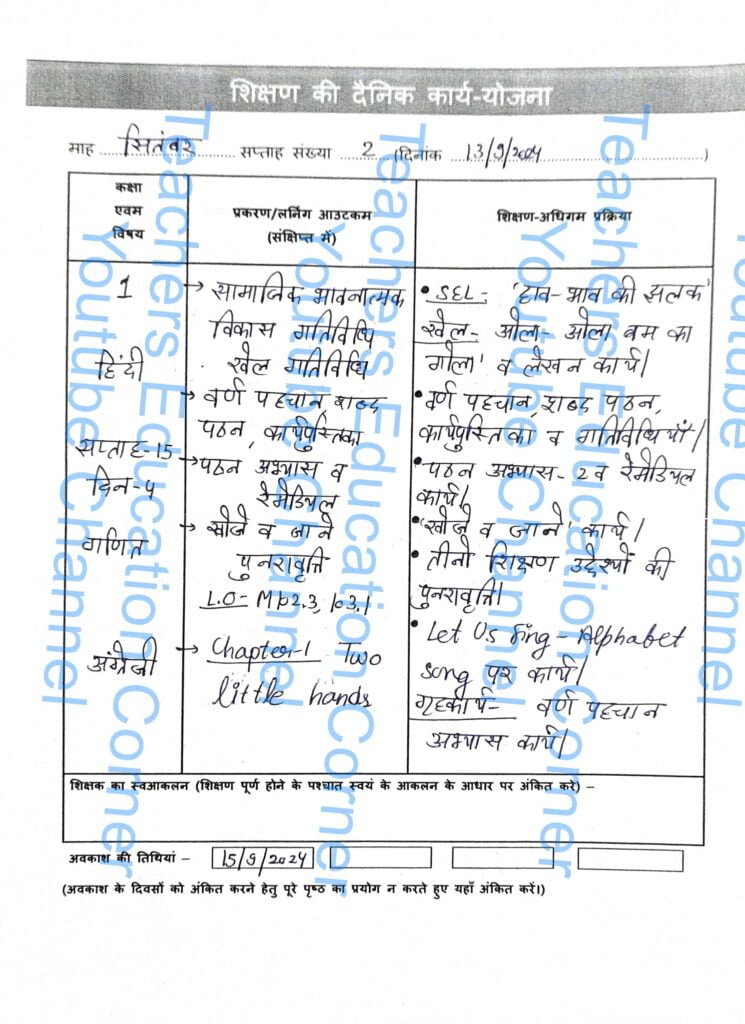 शिक्षण की दैनिक कार्य-योजना
माह सितंबर सप्ताह संख्या 2 (दिनांक 13/9/2024)
कक्षा एवम विषय
प्रकरण/लर्निंग आउटकम (संक्षिप्त में)
शिक्षण-अधिगम प्रक्रिया
1
हिंदी
सप्ताह-15
दिन-4
गणित
अंग्रेजी
→ सामाजिक भावनात्मक
विकास गतिविधि
खेल गतिविधि
→ वर्ण पहचान शब्द
पठन, कार्यपुस्तिका
→ पठन अभ्यास व
रेमेडियल
→ खोजे व जाने
पुनरावृत्ति
L.O- M102.3, 103.1
→ Chapter-1 Two
little hands
• SEL- 'हाव-भाव की झलक'
खेल- ओला-ओला बम का
गोला' व लेखन कार्य।
• वर्ण पहचान, शब्द पठन,
कार्यपुस्तिका व गतिविधियाँ।
• पठन अभ्यास-2 व रेमेडियल
कार्य।
• 'खोजे व जाने' कार्य।
• तीनो शिक्षण उद्देश्यों की
पुनरावृत्ति।
• Let Us Sing - Alphabet
song पर कार्य।
गृहकार्य- वर्ण पहचान
अभ्यास कार्य।
शिक्षक का स्वआकलन (शिक्षण पूर्ण होने के पश्चात स्वयं के आकलन के आधार पर अंकित करे) –
अवकाश की तिथियां – 15/9/2024
(अवकाश के दिवसों को अंकित करने हेतु पूरे पृष्ठ का प्रयोग न करते हुए यहाँ अंकित करें।)
Teachers Education Corner
Youtube Channel
Teachers Education Corner
Youtube Channel
Teachers Education Corner
Youtube Channel